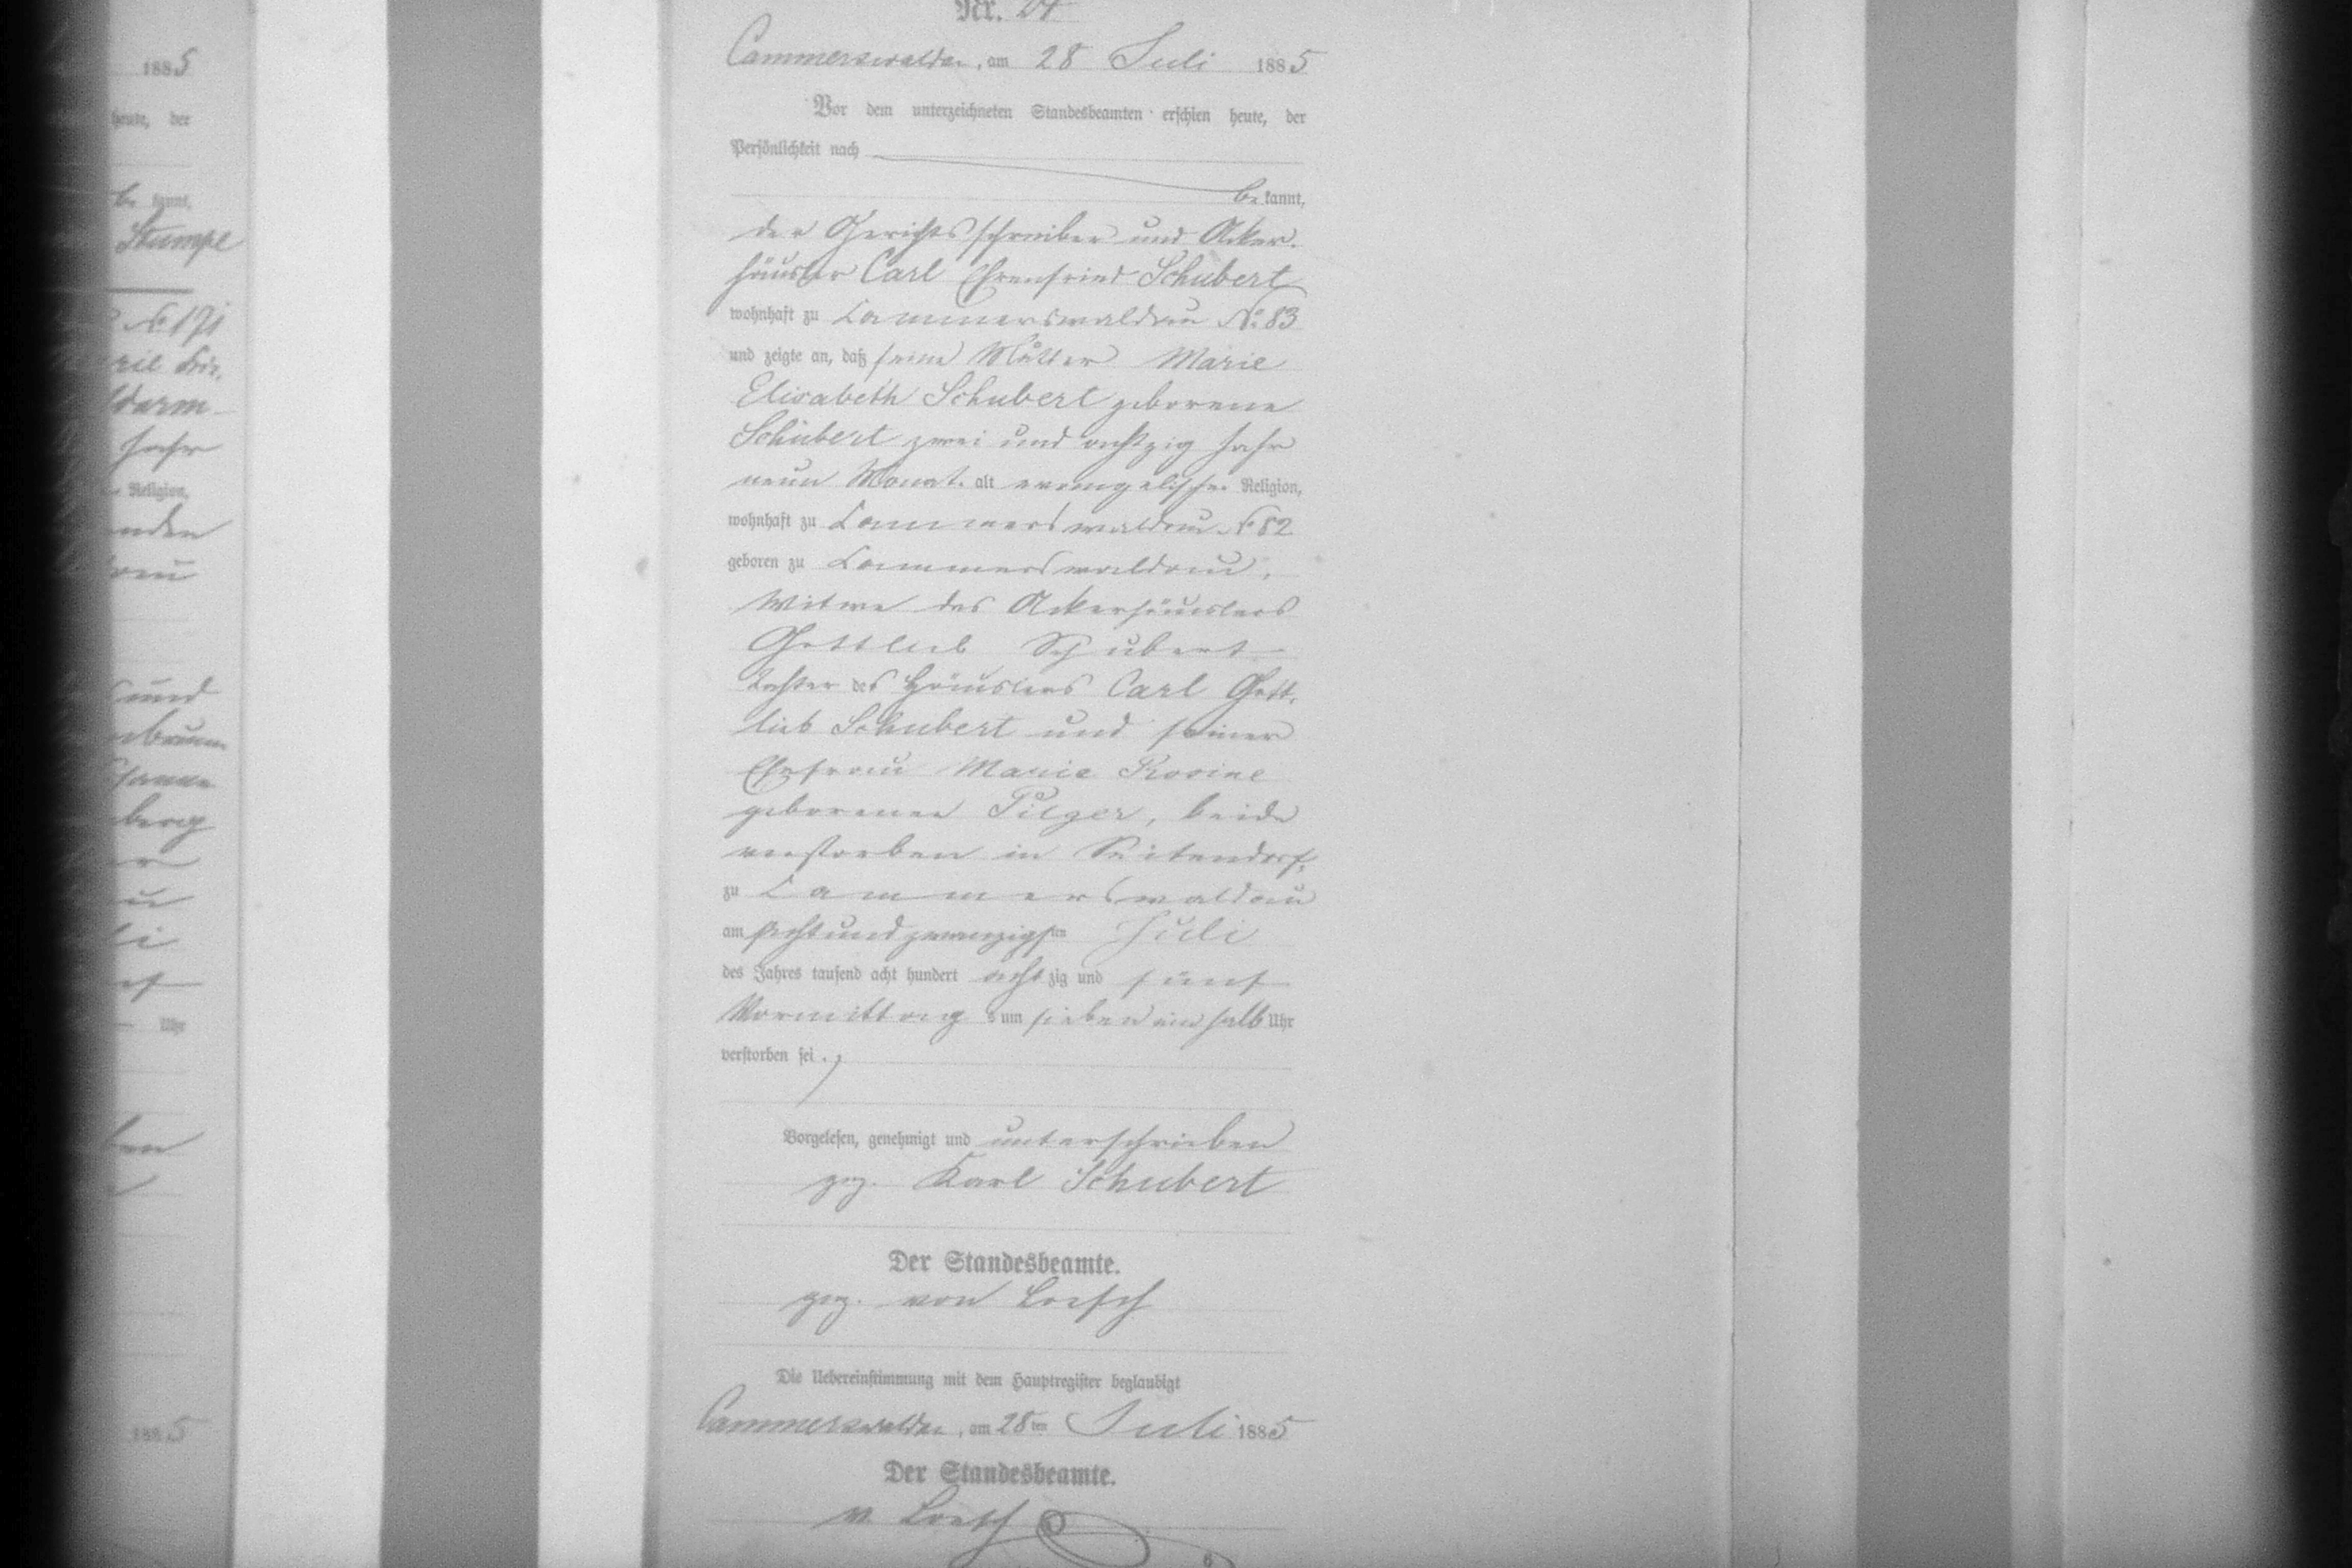 1885
heute, der
be kannt,
Stumpe
No 171
Jahr
Religion,
und
berg
Uhr
1885
Nr. 24
Cammerswaldau, am 28 Juli 1885
Vor dem unterzeichneten Standesbeamten erschien heute, der
Persönlichkeit nach
be kannt,
der Gerichtsschreiber und Acker-
häusler Carl Ehrenfried Schubert
wohnhaft zu Cammerswaldau No 83
und zeigte an, daß seine Mutter Marie
Elisabeth Schubert geborene
Schubert zwei und achtzig Jahr
neun Monat. alt evangelischer Religion,
wohnhaft zu Cammerswaldau No 82
geboren zu Cammerswaldau,
Witwe des Ackerhäuslers
Gottlieb Schubert
Tochter des Häuslers Carl Gott-
lieb Schubert und seiner
Ehefrau Marie Rosine
geborenen Pilger, beide
verstorben in Seitendorf,
zu Cammerswaldau
am achtundzwanzigsten Juli
des Jahres tausend acht hundert acht zig und fünf
Vormittag s um sieben ein halb Uhr
verstorben sei.
Vorgelesen, genehmigt und unterschrieben
gez. Karl Schubert
Der Standesbeamte.
gez. von Loesch
Die Uebereinstimmung mit dem Hauptregister beglaubigt
Cammerswaldau, am 28ten Juli 1885
Der Standesbeamte.
v. Loesch